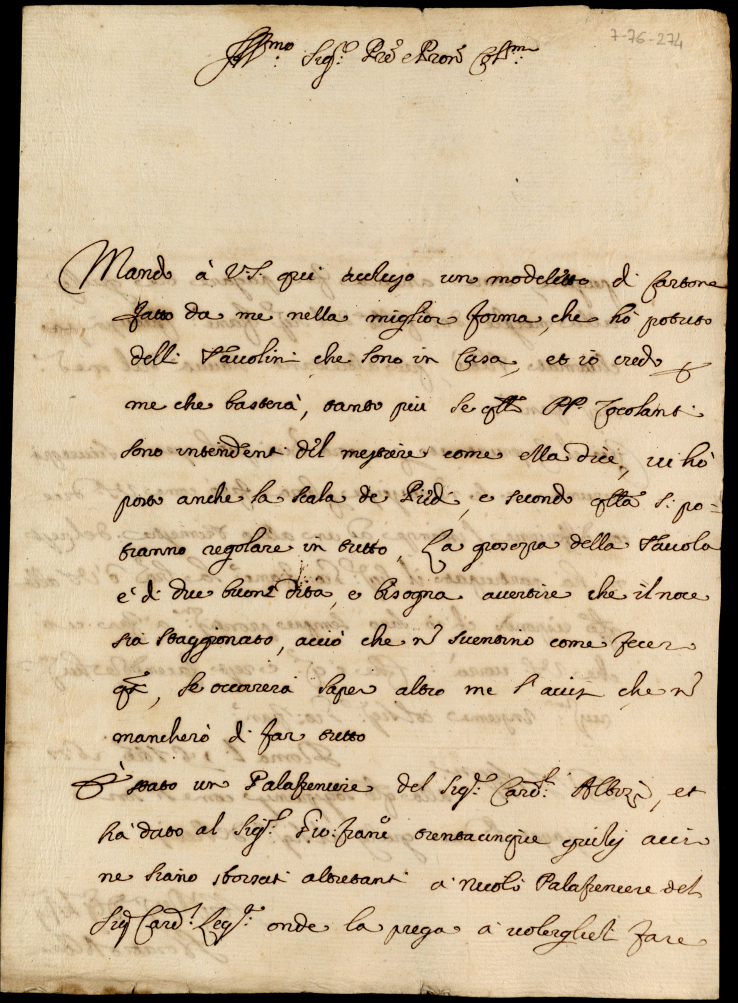 7-76-274
Ill.mo Sig.r Prē e Prōn Col.mo
Mando à V.S. qui accluso un modeletto di Cartone
fatto da me nella miglior forma, che hò potuto
delli Tavolini che sono in Casa, et io credo p
me che basterà, tanto più se q.lli PP. Zocolanti
sono intendenti del mestiere come ella dice, vi hò
posto anche la scala de Piedi, e secondo q.lla si po=
tranno regolare in tutto, La grosezza della Tavola
e' di due buone dita, e bisogna avertire che il noce
sia staggionato, acciò che nō sventino come fecero
q.ti, se occorrerà saper altro me l'avisi che nō
mancherò di far tutto
E' stato un Palafreniere del Sig.r Card.l Albrizi, et
hà dato al Sig.r Gio: Fran.co trentacinque giulij acciò
ne siano sborsati altretanti a Nicolò Palafreniere del
Sig Card.l Leg.to onde la prega a volerglieli fare